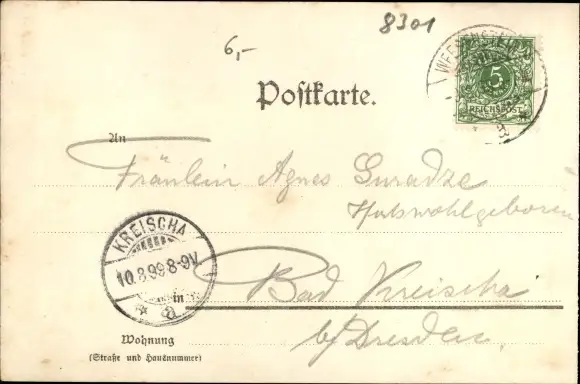 8301
6,-
WEESENSTEIN
5
REICHSPOST
Postkarte.
An
Fräulein Agnes
Hochwohlgeboren
KREISCHA
10.8.99 8-9V
a
in Bad Kreischa
b/Dresden.
Wohnung
(Straße und Hausnummer)